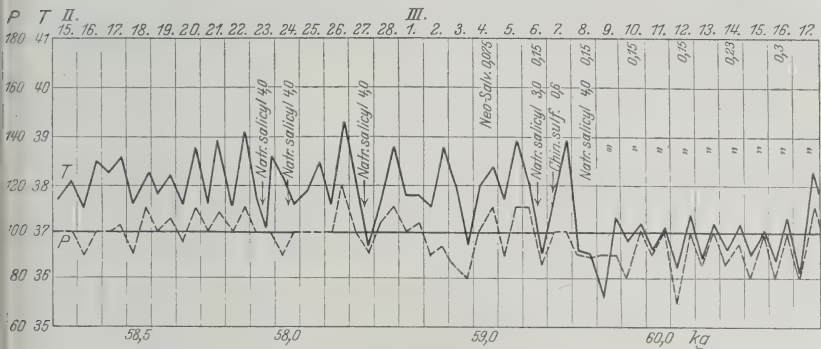 P T II. III.
15. 16. 17. 18. 19. 20. 21. 22. 23. 24. 25. 26. 27. 28. 1. 2. 3. 4. 5. 6. 7. 8. 9. 10. 11. 12. 13. 14. 15. 16. 17.
180 41
160 40
140 39
120 38
100 37
80 36
60 35
Natr. salicyl 4,0
Natr. salicyl 4,0
Natr. salicyl 4,0
Neo-Salv. 0,075
Natr. salicyl 3,0 0,15
Chin. sulf. 0,6
Natr. salicyl 4,0 0,15
0,15
0,15
0,23
0,3
" " " " " " " " "
T
P
58,5 58,0 59,0 60,0 kg